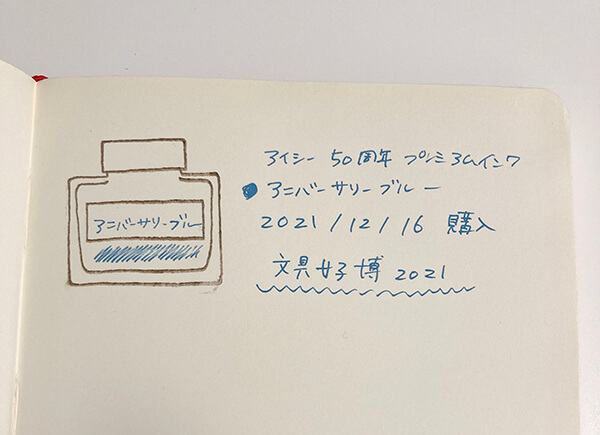 アニバーサリーブルー
アイシー 50周年 プレミアムインク
アニバーサリーブルー
2021/12/16 購入
文具女子博 2021